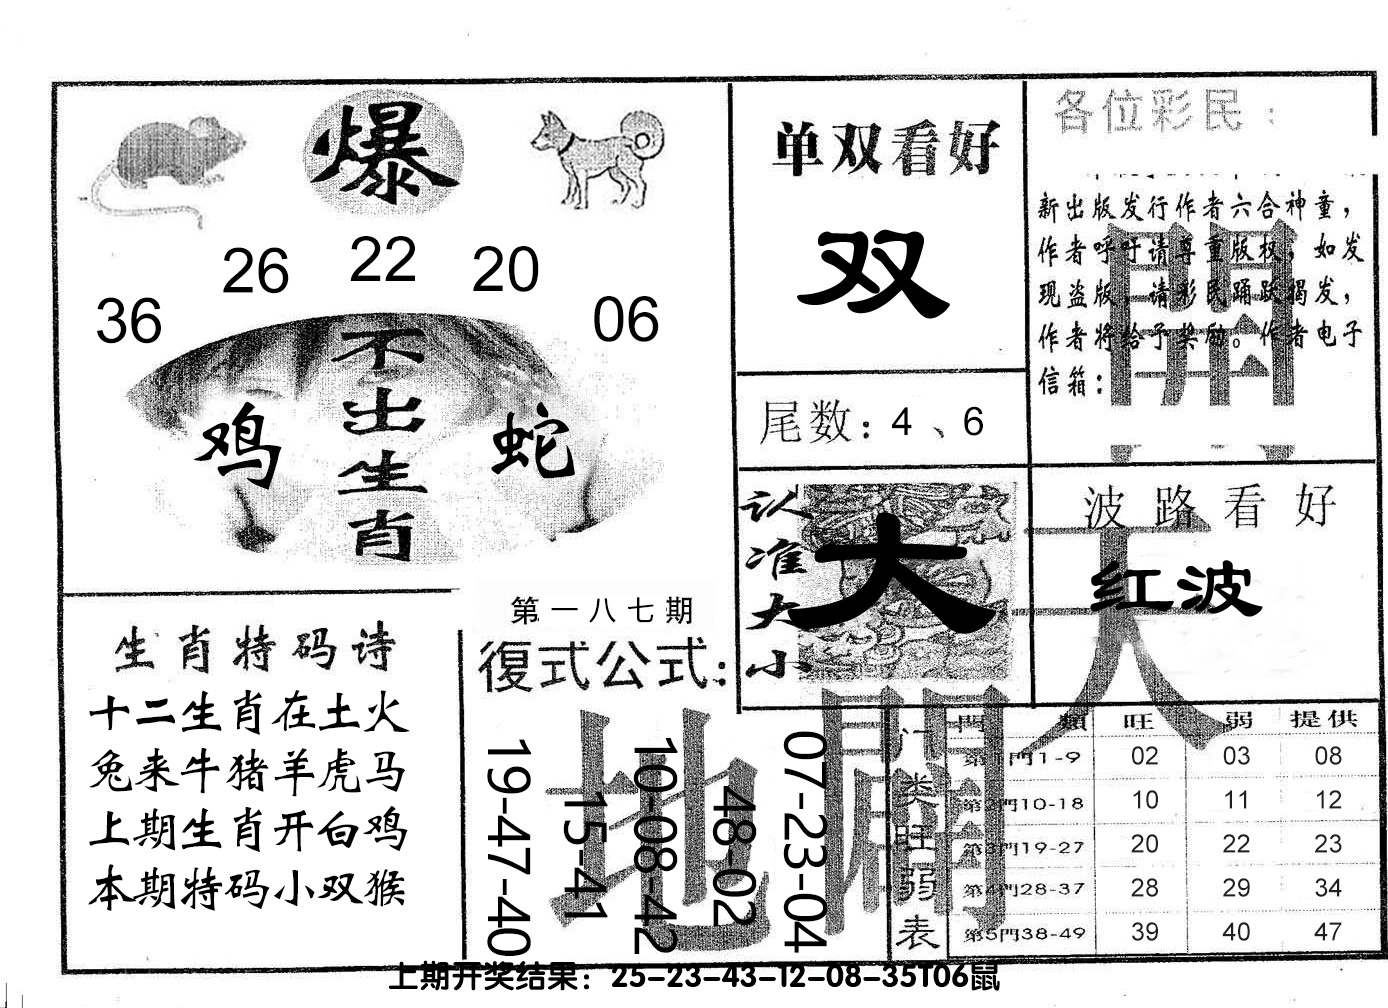 爆
36 26 22 20 06
不出生肖
鸡 蛇
单双看好
双
尾数：4、6
各位彩民：
新出版发行作者六合神童，
作者呼吁请尊重版权，如发
现盗版，请彩民踊跃揭发，
作者将给予奖励。作者电子
信箱：
認准大小
大
波路看好
红波
生肖特码诗
十二生肖在土火
兔来牛猪羊虎马
上期生肖开白鸡
本期特码小双猴
第一八七期
復式公式：
19-47-40
15-41
10-08-42
48-02
07-23-04
天
開
地
闢
门类旺弱表
門類 旺 弱 提供
第1門1-9 02 03 08
第2門10-18 10 11 12
第3門19-27 20 22 23
第4門28-37 28 29 34
第5門38-49 39 40 47
上期开奖结果：25-23-43-12-08-35T06鼠